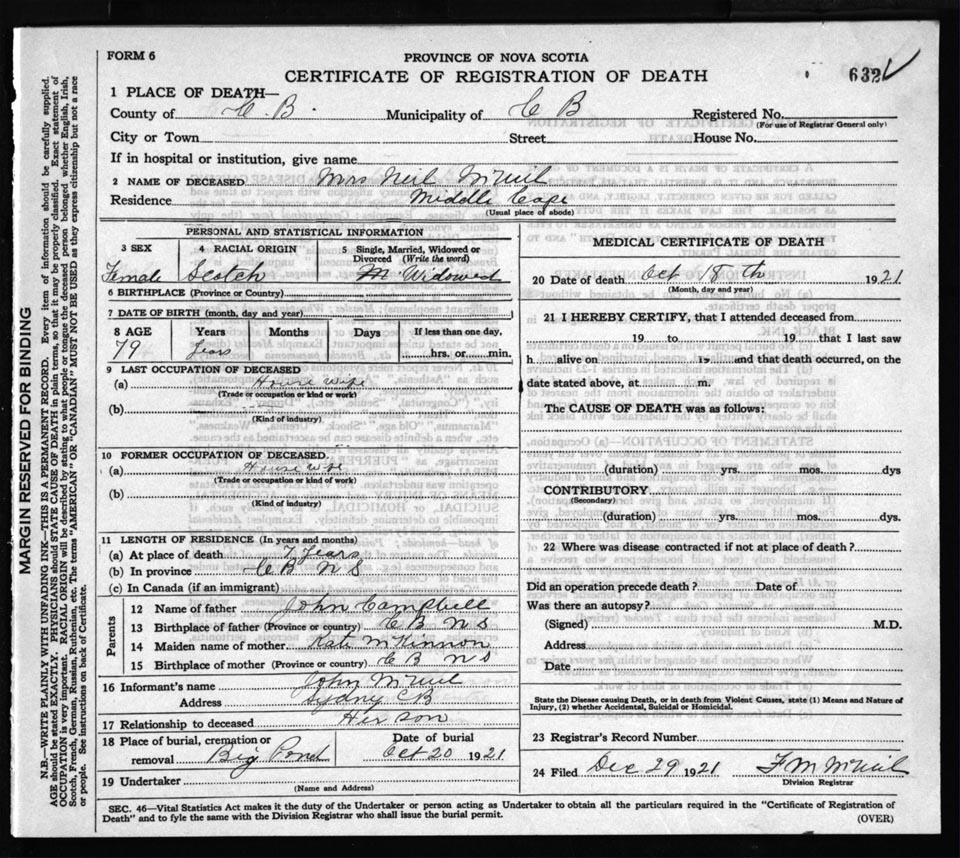 FORM 6
PROVINCE OF NOVA SCOTIA
CERTIFICATE OF REGISTRATION OF DEATH
632
1 PLACE OF DEATH—
County of C. B. Municipality of C B Registered No.
(For use of Registrar General only)
City or Town Street House No.
If in hospital or institution, give name
2 NAME OF DECEASED Mrs Neil McNeil
Residence Middle Cape
(Usual place of abode)
PERSONAL AND STATISTICAL INFORMATION
3 SEX 4 RACIAL ORIGIN 5 Single, Married, Widowed or Divorced (Write the word)
Female Scotch Widowed
6 BIRTHPLACE (Province or Country)
7 DATE OF BIRTH (month, day and year)
8 AGE Years Months Days If less than one day,
79 hrs. or min.
9 LAST OCCUPATION OF DECEASED
(a) House wife
(Trade or occupation or kind of work)
(b)
(Kind of industry)
10 FORMER OCCUPATION OF DECEASED
(a) House wife
(Trade or occupation or kind of work)
(b)
(Kind of industry)
11 LENGTH OF RESIDENCE (In years and months)
(a) At place of death 7 years
(b) In province C B N S
(c) In Canada (if an immigrant)
Parents
12 Name of father John Campbell
13 Birthplace of father (Province or country) C B N S
14 Maiden name of mother Kate McKinnon
15 Birthplace of mother (Province or country) C B N S
16 Informant's name John McNeil
Address Sydney CB
17 Relationship to deceased Her son
18 Place of burial, cremation or removal Big Pond
Date of burial Oct 20 1921
19 Undertaker
(Name and Address)
MEDICAL CERTIFICATE OF DEATH
20 Date of death Oct 18th 1921
(Month, day and year)
21 I HEREBY CERTIFY, that I attended deceased from
19 to 19 that I last saw
h alive on 19 and that death occurred, on the
date stated above, at m.
The CAUSE OF DEATH was as follows:
(duration) yrs. mos. dys
CONTRIBUTORY
(Secondary)
(duration) yrs. mos. dys.
22 Where was disease contracted if not at place of death?
Did an operation precede death? Date of
Was there an autopsy?
(Signed) M.D.
Address
Date
State the Disease causing Death, or in death from Violent Causes, state (1) Means and Nature of Injury, (2) whether Accidental, Suicidal or Homicidal.
23 Registrar's Record Number
24 Filed Dec 29 1921 F M McNeil
Division Registrar
SEC. 46—Vital Statistics Act makes it the duty of the Undertaker or person acting as Undertaker to obtain all the particulars required in the "Certificate of Registration of
Death" and to fyle the same with the Division Registrar who shall issue the burial permit.
(OVER)
MARGIN RESERVED FOR BINDING
N.B.—WRITE PLAINLY WITH UNFADING INK—THIS IS A PERMANENT RECORD. Every item of information should be carefully supplied.
AGE should be stated EXACTLY. PHYSICIANS should STATE CAUSE OF DEATH in plain terms, so that it may be properly classified. Exact statement of
OCCUPATION is very important. RACIAL ORIGIN will be described by stating to what people or tongue the deceased person belonged whether English, Irish,
Scotch, French, German, Russian, Ruthenian, etc. The terms "AMERICAN" OR "CANADIAN" MUST NOT BE USED as they express citizenship but not a race
or people. See instructions on back of Certificate.